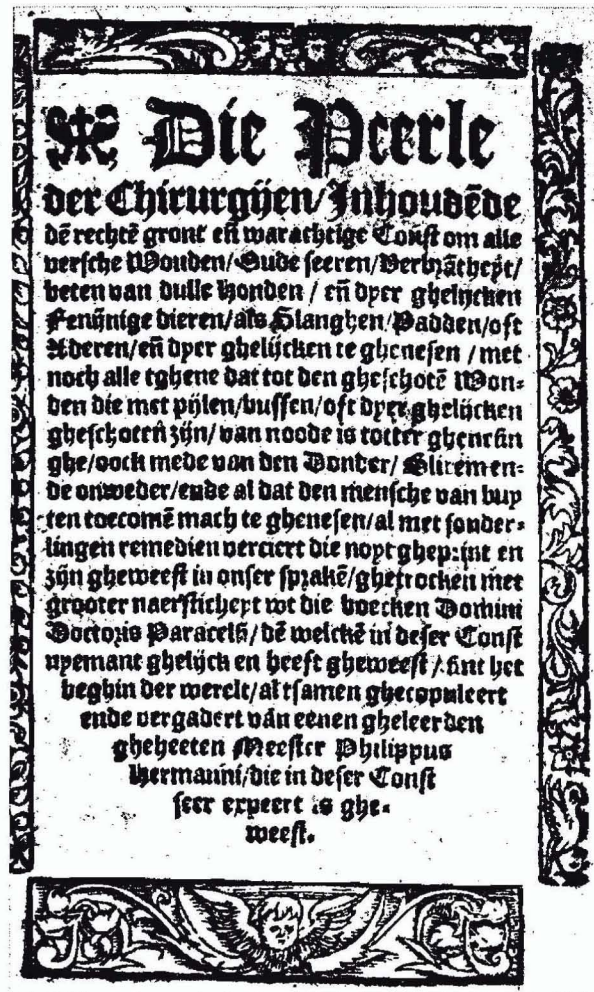 Die Peerle
der Chirurgijen/Inhoudēde
dē rechtē gront eñ warachtige Const om alle
versche Wonden/Oude seeren/Verbrātheyt/
beten van dulle honden / eñ dyer ghelijcken
Fenijnige dieren/als Slanghen/Padden/oft
Aderen/eñ dyer ghelijcken te ghenesen / met
noch alle tghene dat tot den gheschotē Won=
den die met pijlen/bussen/oft dyer ghelijcken
gheschoten zijn/van noode is totter ghenesin
ghe/oock mede van den Donder/ Blixemen=
de onweder/ende al dat den mensche van buy
ten toecomē mach te ghenesen/al met sonder=
lingen remedien verciert die noyt gheprint en
zijn gheweest in onser sprakē/ghetrocken met
grooter naersticheyt wt die boecken Domini
Doctoris Paracelsi/dē welckē in deser Const
nyemant ghelijck en heeft gheweest/sint het
beghin der werelt/al tsamen ghecopuleert
ende vergadert van eenen gheleerden
gheheeten Meester Philippus
Hermanni/die in deser Const
seer expeert is ghe=
weest.